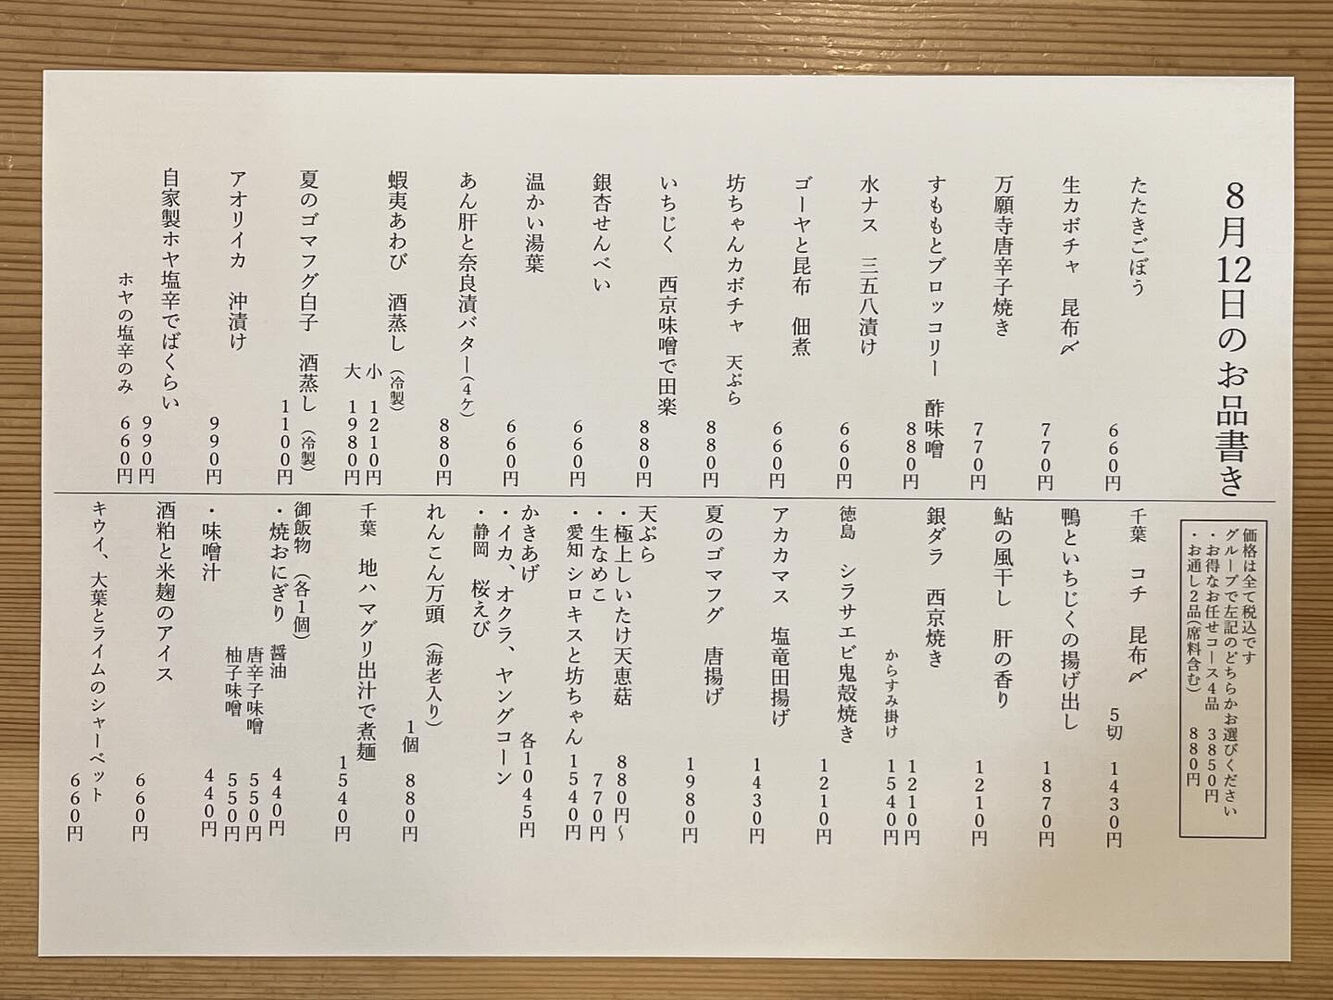 8月12日のお品書き
たたきごぼう
660円
生カボチャ 昆布〆
770円
万願寺唐辛子焼き
770円
すももとブロッコリー 酢味噌
880円
水ナス 三五八漬け
660円
ゴーヤと昆布 佃煮
660円
坊ちゃんカボチャ 天ぷら
880円
いちじく 西京味噌で田楽
880円
銀杏せんべい
660円
温かい湯葉
660円
あん肝と奈良漬バター(4ケ)
880円
蝦夷あわび 酒蒸し(冷製)
小 1210円
大 1980円
夏のゴマフグ白子 酒蒸し(冷製)
1100円
アオリイカ 沖漬け
990円
自家製ホヤ塩辛でばくらい
990円
ホヤの塩辛のみ 660円
価格は全て税込です
グループで左記のどちらかお選びください
・お得なお任せコース4品 3850円
・お通し2品(席料含む) 880円
千葉 コチ 昆布〆
5切 1430円
鴨といちじくの揚げ出し
1870円
鮎の風干し 肝の香り
1210円
銀ダラ 西京焼き
1210円
からすみ掛け 1540円
徳島 シラサエビ鬼殻焼き
1210円
アカカマス 塩竜田揚げ
1430円
夏のゴマフグ 唐揚げ
1980円
天ぷら
・極上しいたけ天恵菇 880円~
・生なめこ 770円
・愛知 シロキスと坊ちゃん 1540円
かきあげ 各1045円
・イカ、オクラ、ヤングコーン
・静岡 桜えび
れんこん万頭 (海老入り)
1個 880円
千葉 地ハマグリ出汁で煮麺
1540円
御飯物 (各1個)
・焼おにぎり 醤油 440円
唐辛子味噌 550円
柚子味噌 550円
・味噌汁 440円
酒粕と米麹のアイス
660円
キウイ、大葉とライムのシャーベット
660円